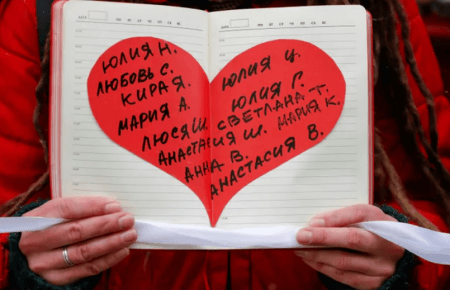 ЮЛИЯ Н.
ЛЮБОВЬ С.
КИРА Я.
МАРИЯ А.
ЛЮСЯ Ш.
АНАСТАСИЯ Ш.
АННА В.
ЮЛИЯ Ц.
ЮЛИЯ Г.
СВЕТЛАНА Т.
МАРИЯ К.
АНАСТАСИЯ В.